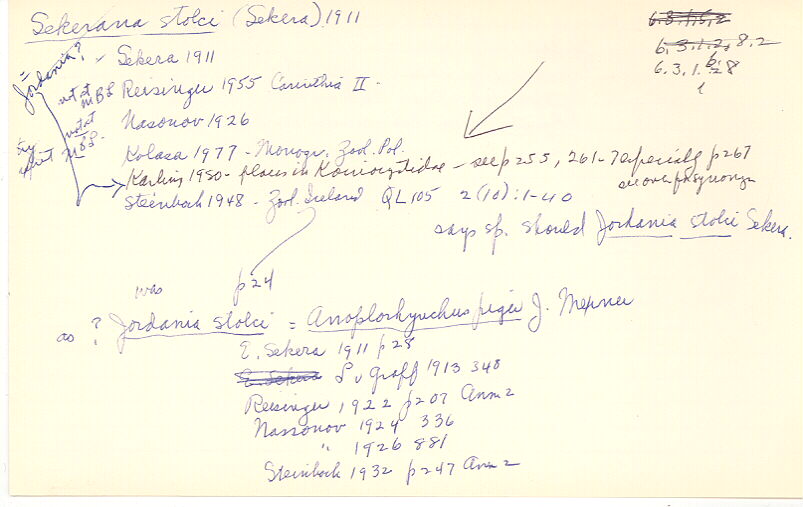 Sekerana stolci (Sekera) 1911
6.3.1.5,2
6.3.1.2, 8.2
6.3.1.2 8
6
1
= Jordania?
Sekera 1911
not at MBL Reisinger 1955 Carinthia II.
not at MBL Nasonov 1926
try reprint
Kolasa 1977 - Monogr. Zool. Pol.
Karling 1980 - places in Koinocystidae - see p 255, 261-7 especially p 267
see over for synonym
Steinbock 1948 - Zool. Iceland QL 105 2(10):1-40
says sp. should Jordania stolci Sekera.
was p 24
as ? Jordania stolci = Anoplorhynchus piger J. Meixner
E. Sekera 1911 p 28
E. Sekera L v Graff 1913 348
Reisinger 1922 p 207 Anm 2
Nassonov 1924 336
" 1926 881
Steinbock 1932 p 247 Anm 2